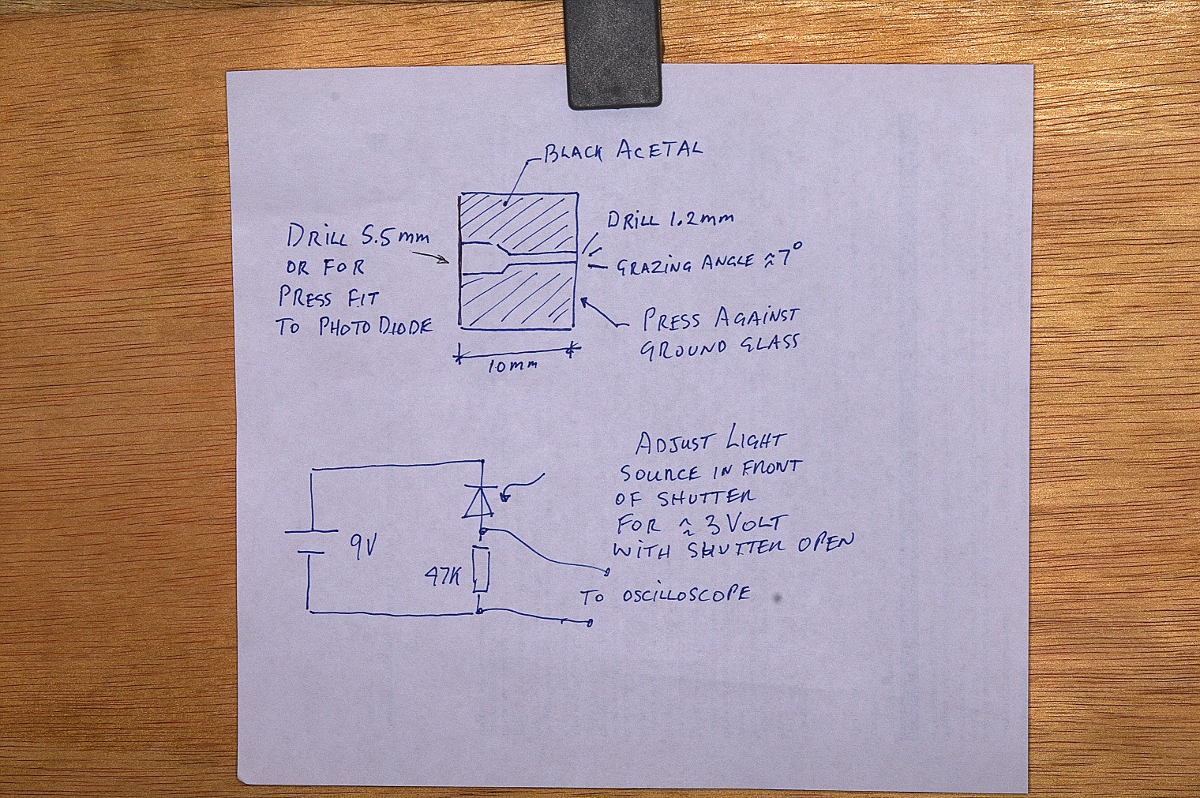 BLACK ACETAL
DRILL 5.5mm
OR FOR
PRESS FIT
TO PHOTO DIODE
DRILL 1.2mm
GRAZING ANGLE ≈ 7°
PRESS AGAINST
GROUND GLASS
10mm
ADJUST LIGHT
SOURCE IN FRONT
OF SHUTTER
FOR ≈ 3 VOLT
WITH SHUTTER OPEN
9V
47K
TO OSCILLOSCOPE